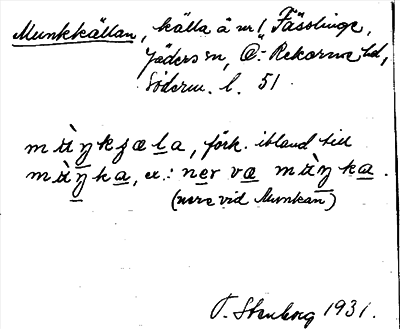 Munkkällan, källa å nr 1 Fässlinge,
Jäders sn, Ö. Rekarne hd,
Söderm. l. 51
mùŋkɟæla, förk. ibland till
mùŋka, ex.: ner væ mùŋka.
(nere vid Munkan)
T. Stenberg 1931.